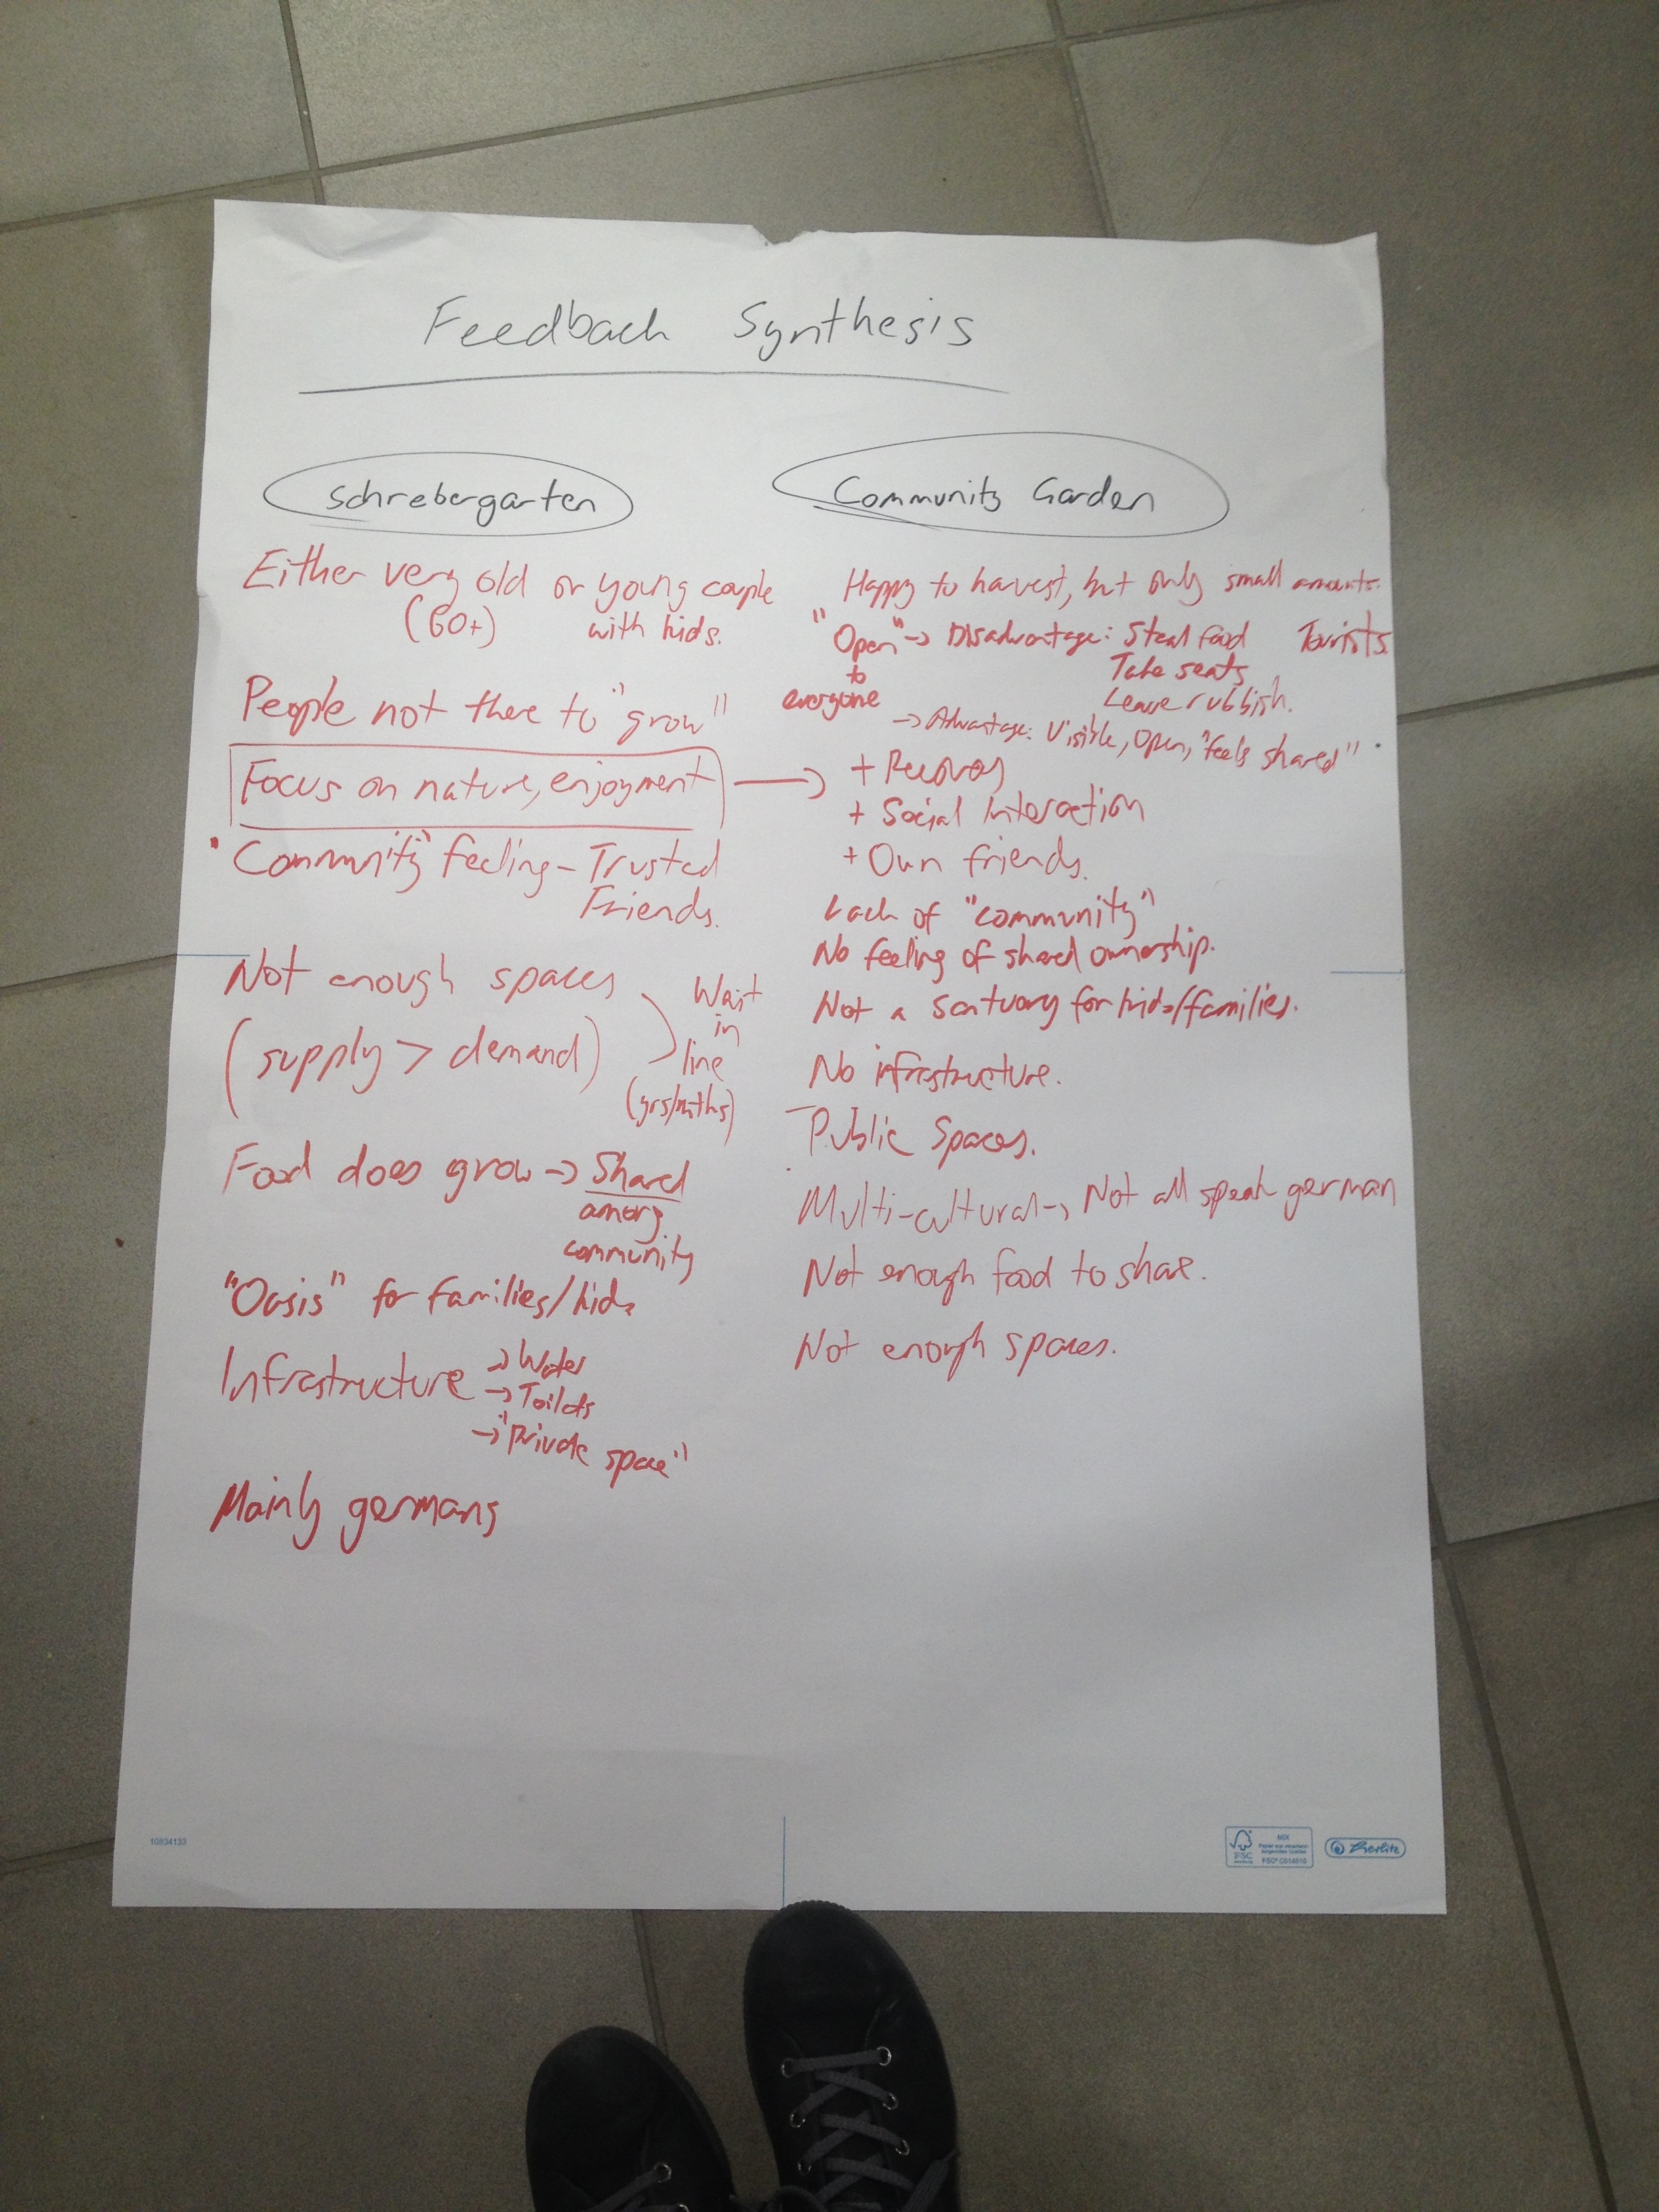 Feedback Synthesis
Schrebergarten
Either very old or young couple
(60+) with kids.
People not there to "grow"
Focus on nature, enjoyment →
"Community" feeling - Trusted
Friends.
Not enough spaces
(supply > demand)
Wait
in
line
(yrs/mths)
Food does grow → Shared
among
community
"Oasis" for families/kids
Infrastructure → Water
→ Toilets
→ "Private space"
Mainly germans
Community Garden
Happy to harvest, but only small amounts.
"Open" → Disadvantage: Steal food Tourists
to
everyone
Take seats
Leave rubbish.
→ Advantage: Visible, Open, "feels shared"
+
+ Social Interaction
+ Own friends.
Lack of "community"
No feeling of shared ownership.
Not a santuary for kids/families.
No infrastructure.
Public Spaces.
Multi-cultural → Not all speak german
Not enough food to share.
Not enough spaces.
10834133
FSC
MIX
Herlitz